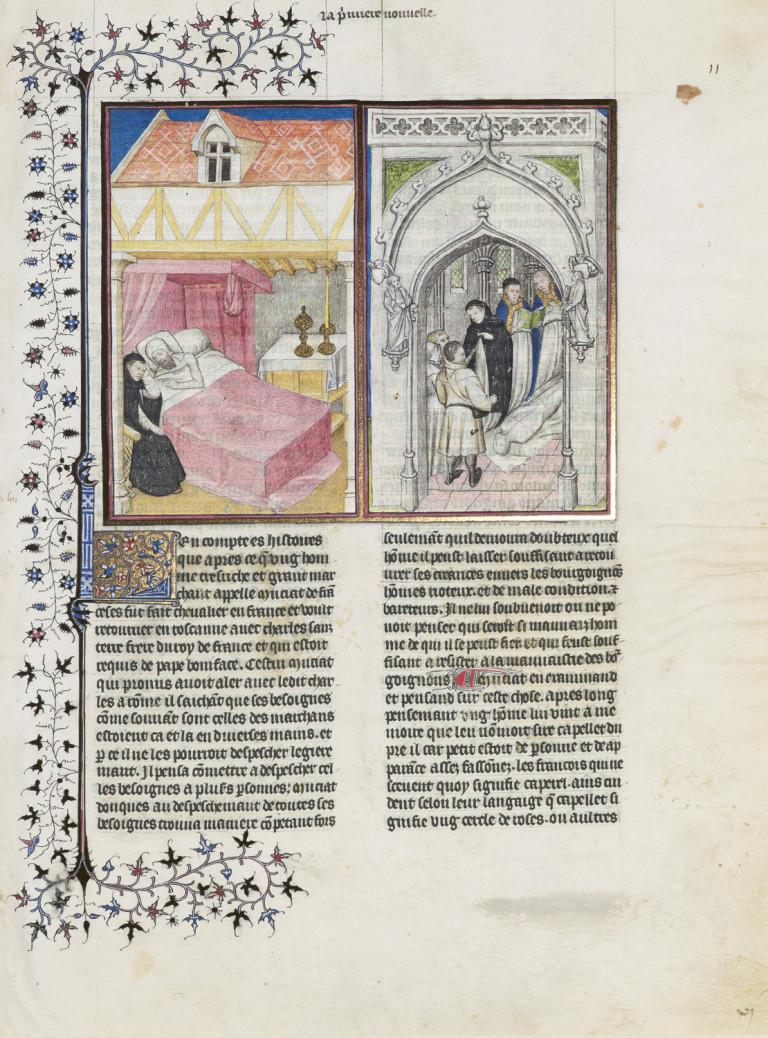 La p̄miere nouvelle
11
En compte es histoires
que apres ce q̄ ung hom
me tresriche et grant mar
chant appelle musciat de frā
ceses fut fait chevalier en france et voult
retourner en toscanne avec charles sanz
terre frere du roy de france et qui estoit
requis de pape boniface. Cestui musciat
qui promis avoit aler avec ledit char
les a cōme il sachāt que ses besoignes
cōme souvāt sont celles des marchans
estoient ca et la en diverses mains. et
p ce il ne les pourroit despescher legiere
mant. Il pensa cōmettre a despescher cel
les besoignes a pluss psonnes: musciat
donques au despeschemant de toutes ses
besoignes trouva maniere cōpetant fors
seulemāt quil demoura doubteux quel
hōme il peust laisser souffisant a recou
vrer ses creances envers les bourgoignōs
hōmes rioteux. et de male condition. et
barateurs. Il ne lui souvenoit ou ne po
voit penser qui seroit si mauvaiz hom
me de qui il se peust fier et qui feust souf
fisant a resister a la mauvaistie des bo
goignons Musciat en examinand
et pensand sur ceste chose. apres long
pensemant ung hōme lui vint a me
moire que len nōmoit sire capellet du
pre il car petit estoit de psonne et de ap
parāce assez fassonez. les francois qui ne
scevent quoy signifie capel. ains cui
dent selon leur langaige q̄ capellet si
gnifie ung cercle de roses. ou aultres